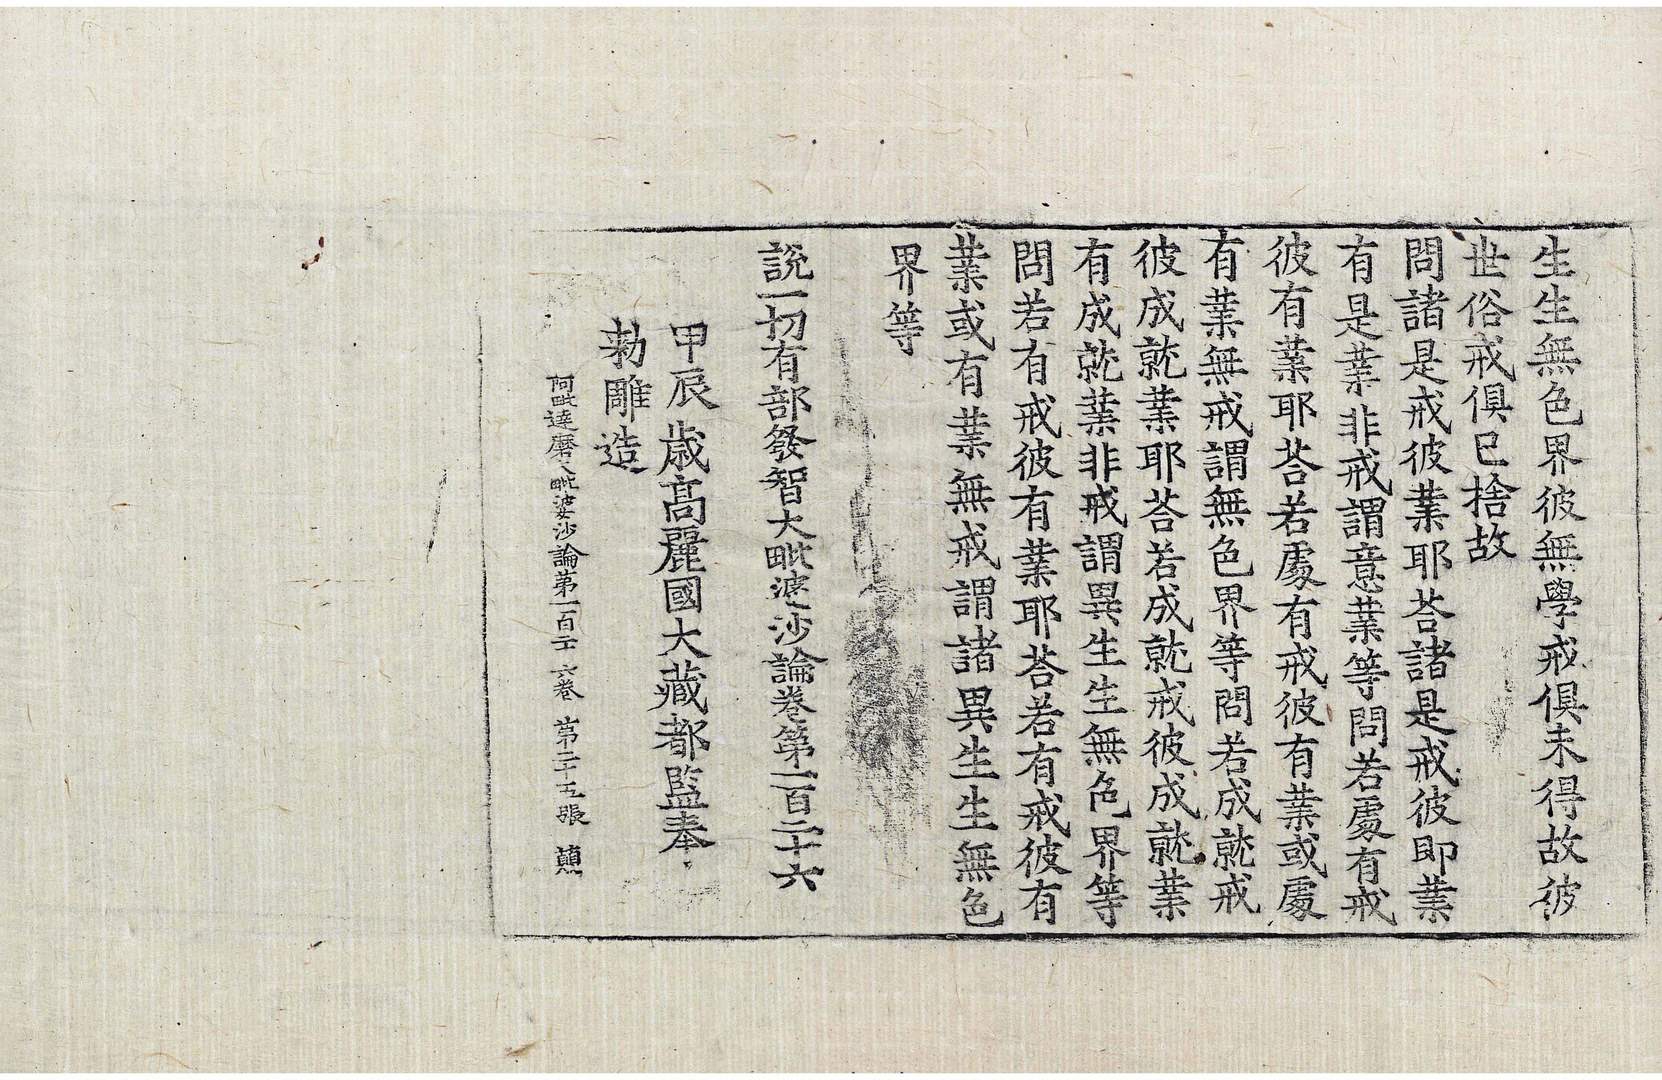 生生無色界彼無學戒俱未得故彼
世俗戒俱已捨故
問諸是戒彼業耶荅諸是戒彼即業
有是業非戒謂意業等問若處有戒
彼有業耶荅若處有戒彼有業或處
有業無戒謂無色界等問若成就戒
彼成就業耶荅若成就戒彼成就業
有成就業非戒謂異生生無色界等
問若有戒彼有業耶荅若有戒彼有
業或有業無戒謂諸異生生無色
界等
說一切有部發智大毗婆沙論卷第一百二十六
甲辰歲高麗國大藏都監奉
勅雕造
阿毗達磨大毗婆沙論第一百二十六卷 第二十五張